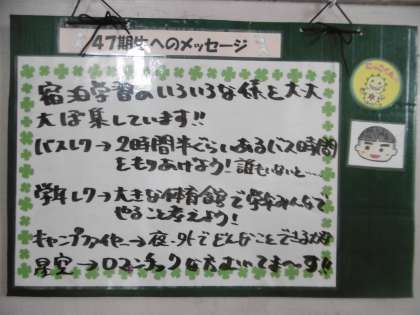 47期生へのメッセージ
宿泊学習のいろいろな係を大大
大ぼ集しています!!
バスレク→2時間半ぐらいあるバス時間
をもりあげよう!誰もいないと…
学年レク→大きな体育館で学年みんなで
やること考えよう!
キャンプファイヤー→夜・外でどんなことできるかな
星空→ロマンチックな